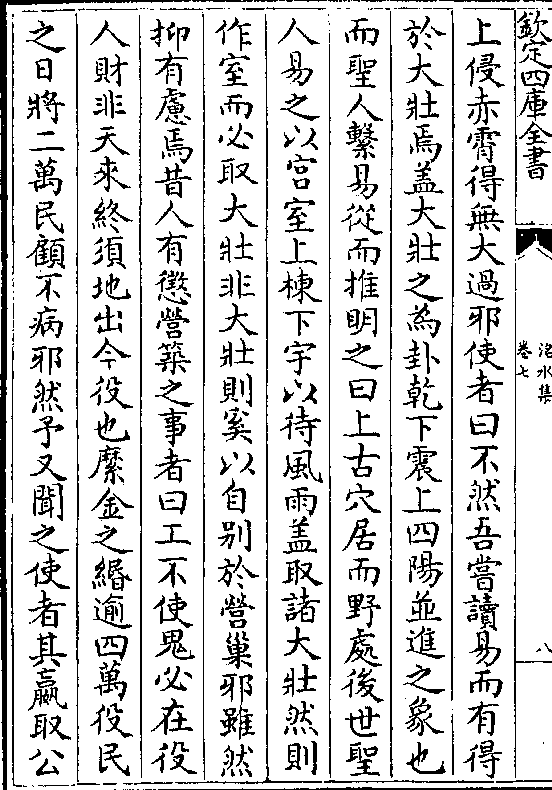 欽定四庫全書
洺水集
卷七
八
上侵赤霄得無大過邪使者曰不然吾嘗讀易而有得
於大壯焉盖大壯之為卦乾下震上四陽並進之象也
而聖人繫易從而推明之曰上古穴居而野處後世聖
人易之以宫室上棟下宇以待風雨盖取諸大壯然則
作室而必取大壯非大壯則奚以自别於營巢邪雖然
抑有慮焉昔人有懲營築之事者曰工不使鬼必在役
人財非天來終須地出今役也縻金之緡逾四萬役民
之日將二萬民顧不病邪然予又聞之使者其贏取公